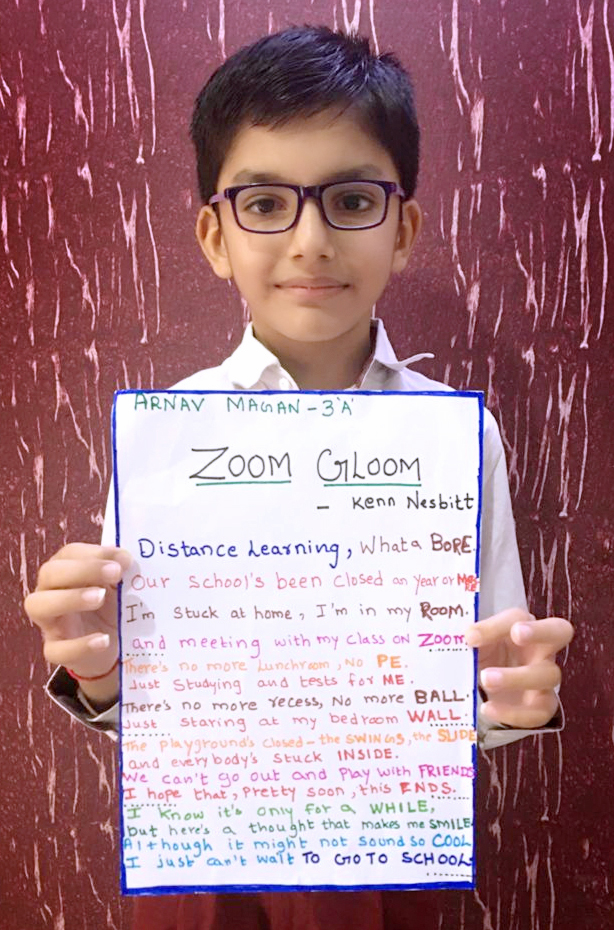 ARNAV MAGAN - 3'A'
ZOOM GLOOM
- Kenn Nesbitt
Distance Learning, What a BORE.
Our school's been closed an year or MORE
I'm stuck at home, I'm in my ROOM.
and meeting with my class on ZOOM.
There's no more Lunchroom, No PE.
Just Studying and tests for ME.
There's no more recess, No more BALL.
Just staring at my bedroom WALL.
The playground's closed - the SWINGS, the SLIDE
and everybody's stuck INSIDE.
We can't go out and play with FRIENDS
I hope that, Pretty soon, this ENDS.
I know it's only for a WHILE,
but here's a thought that makes me SMILE.
Although it might not sound so COOL
I just can't wait TO GO TO SCHOOL.